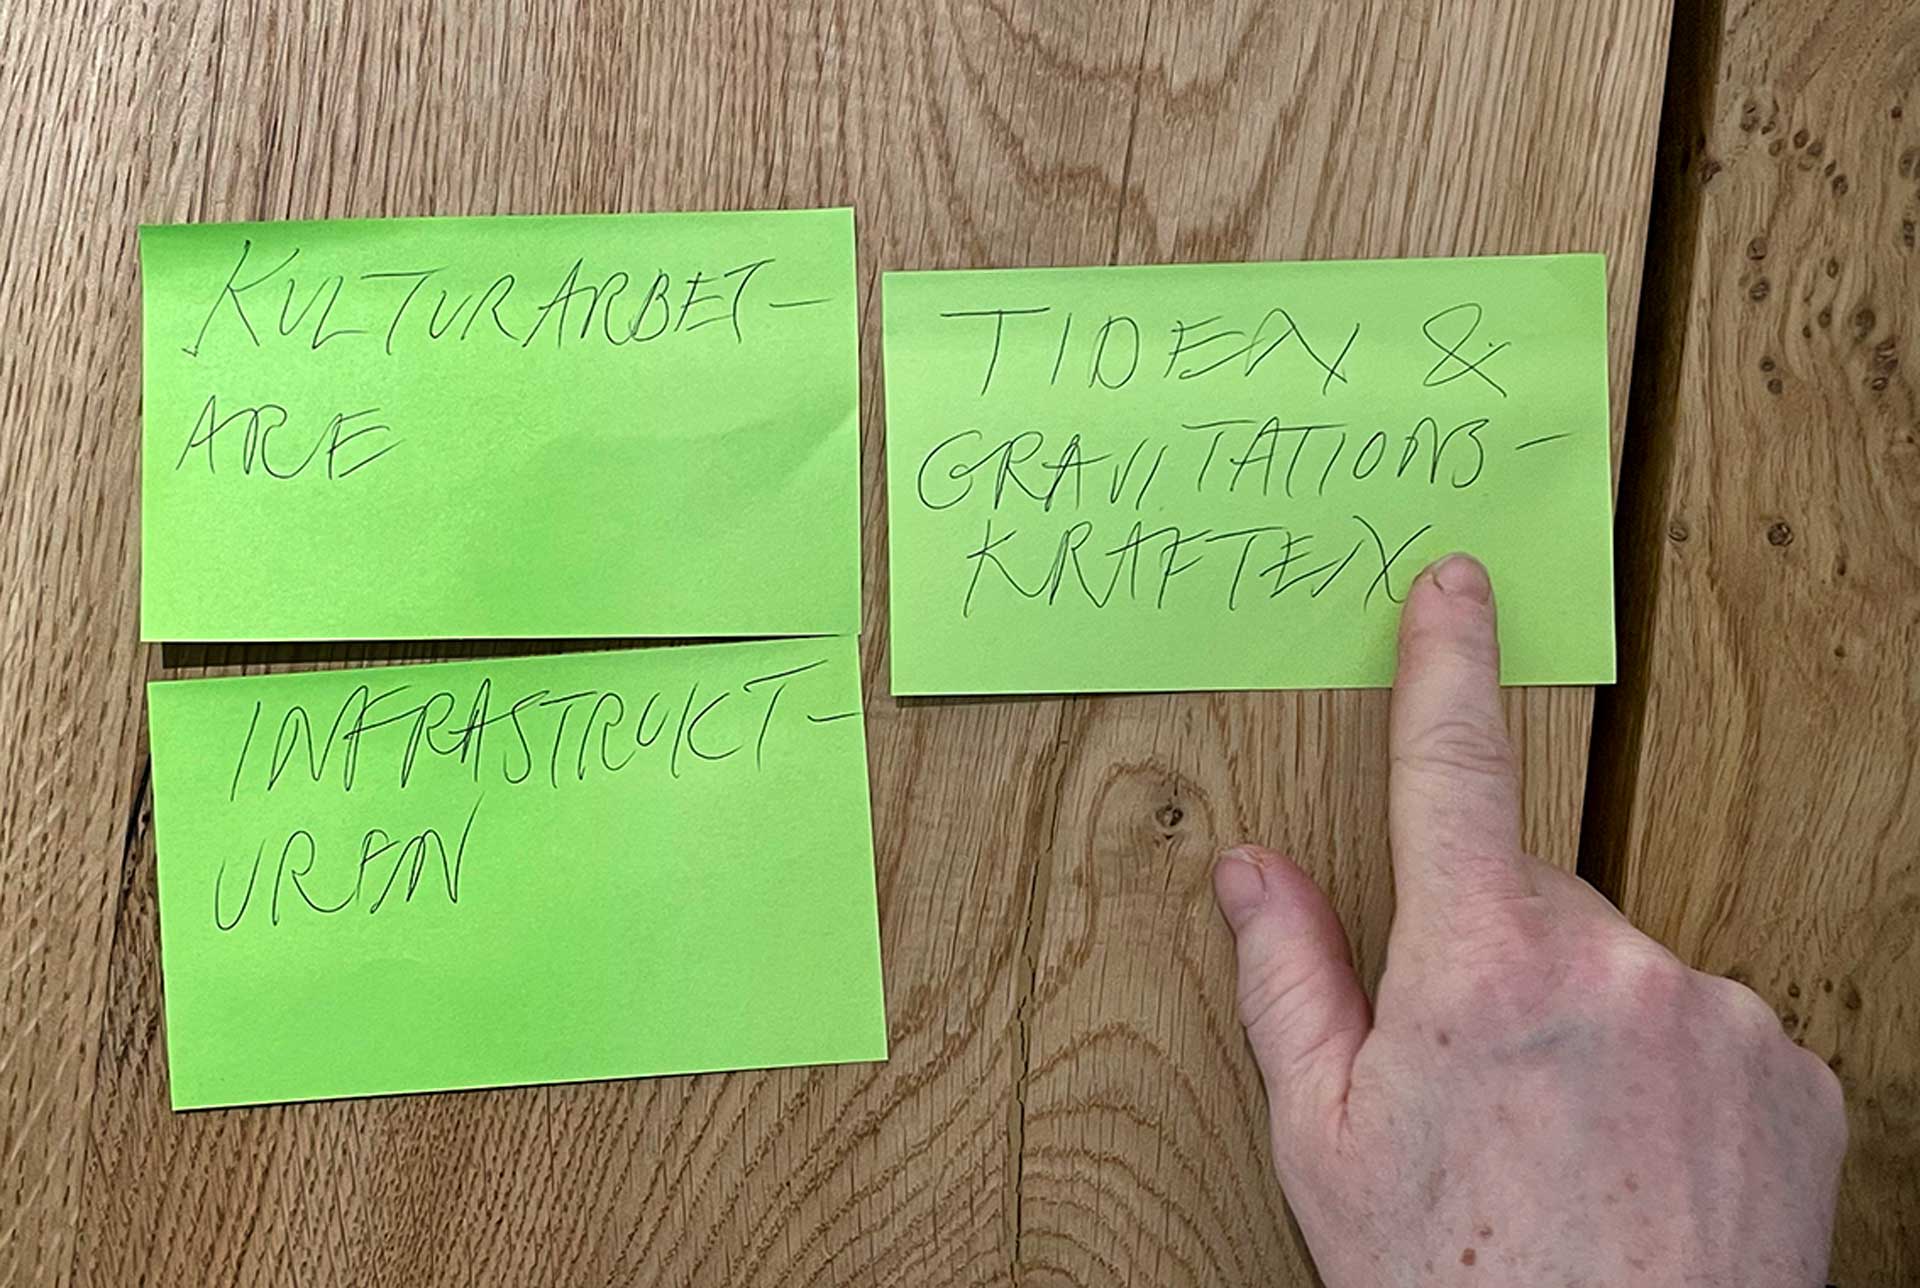 KULTURARBET-
ARE
INFRASTRUKT-
UREN
TIDEN &
GRAVITATIONS-
KRAFTEN